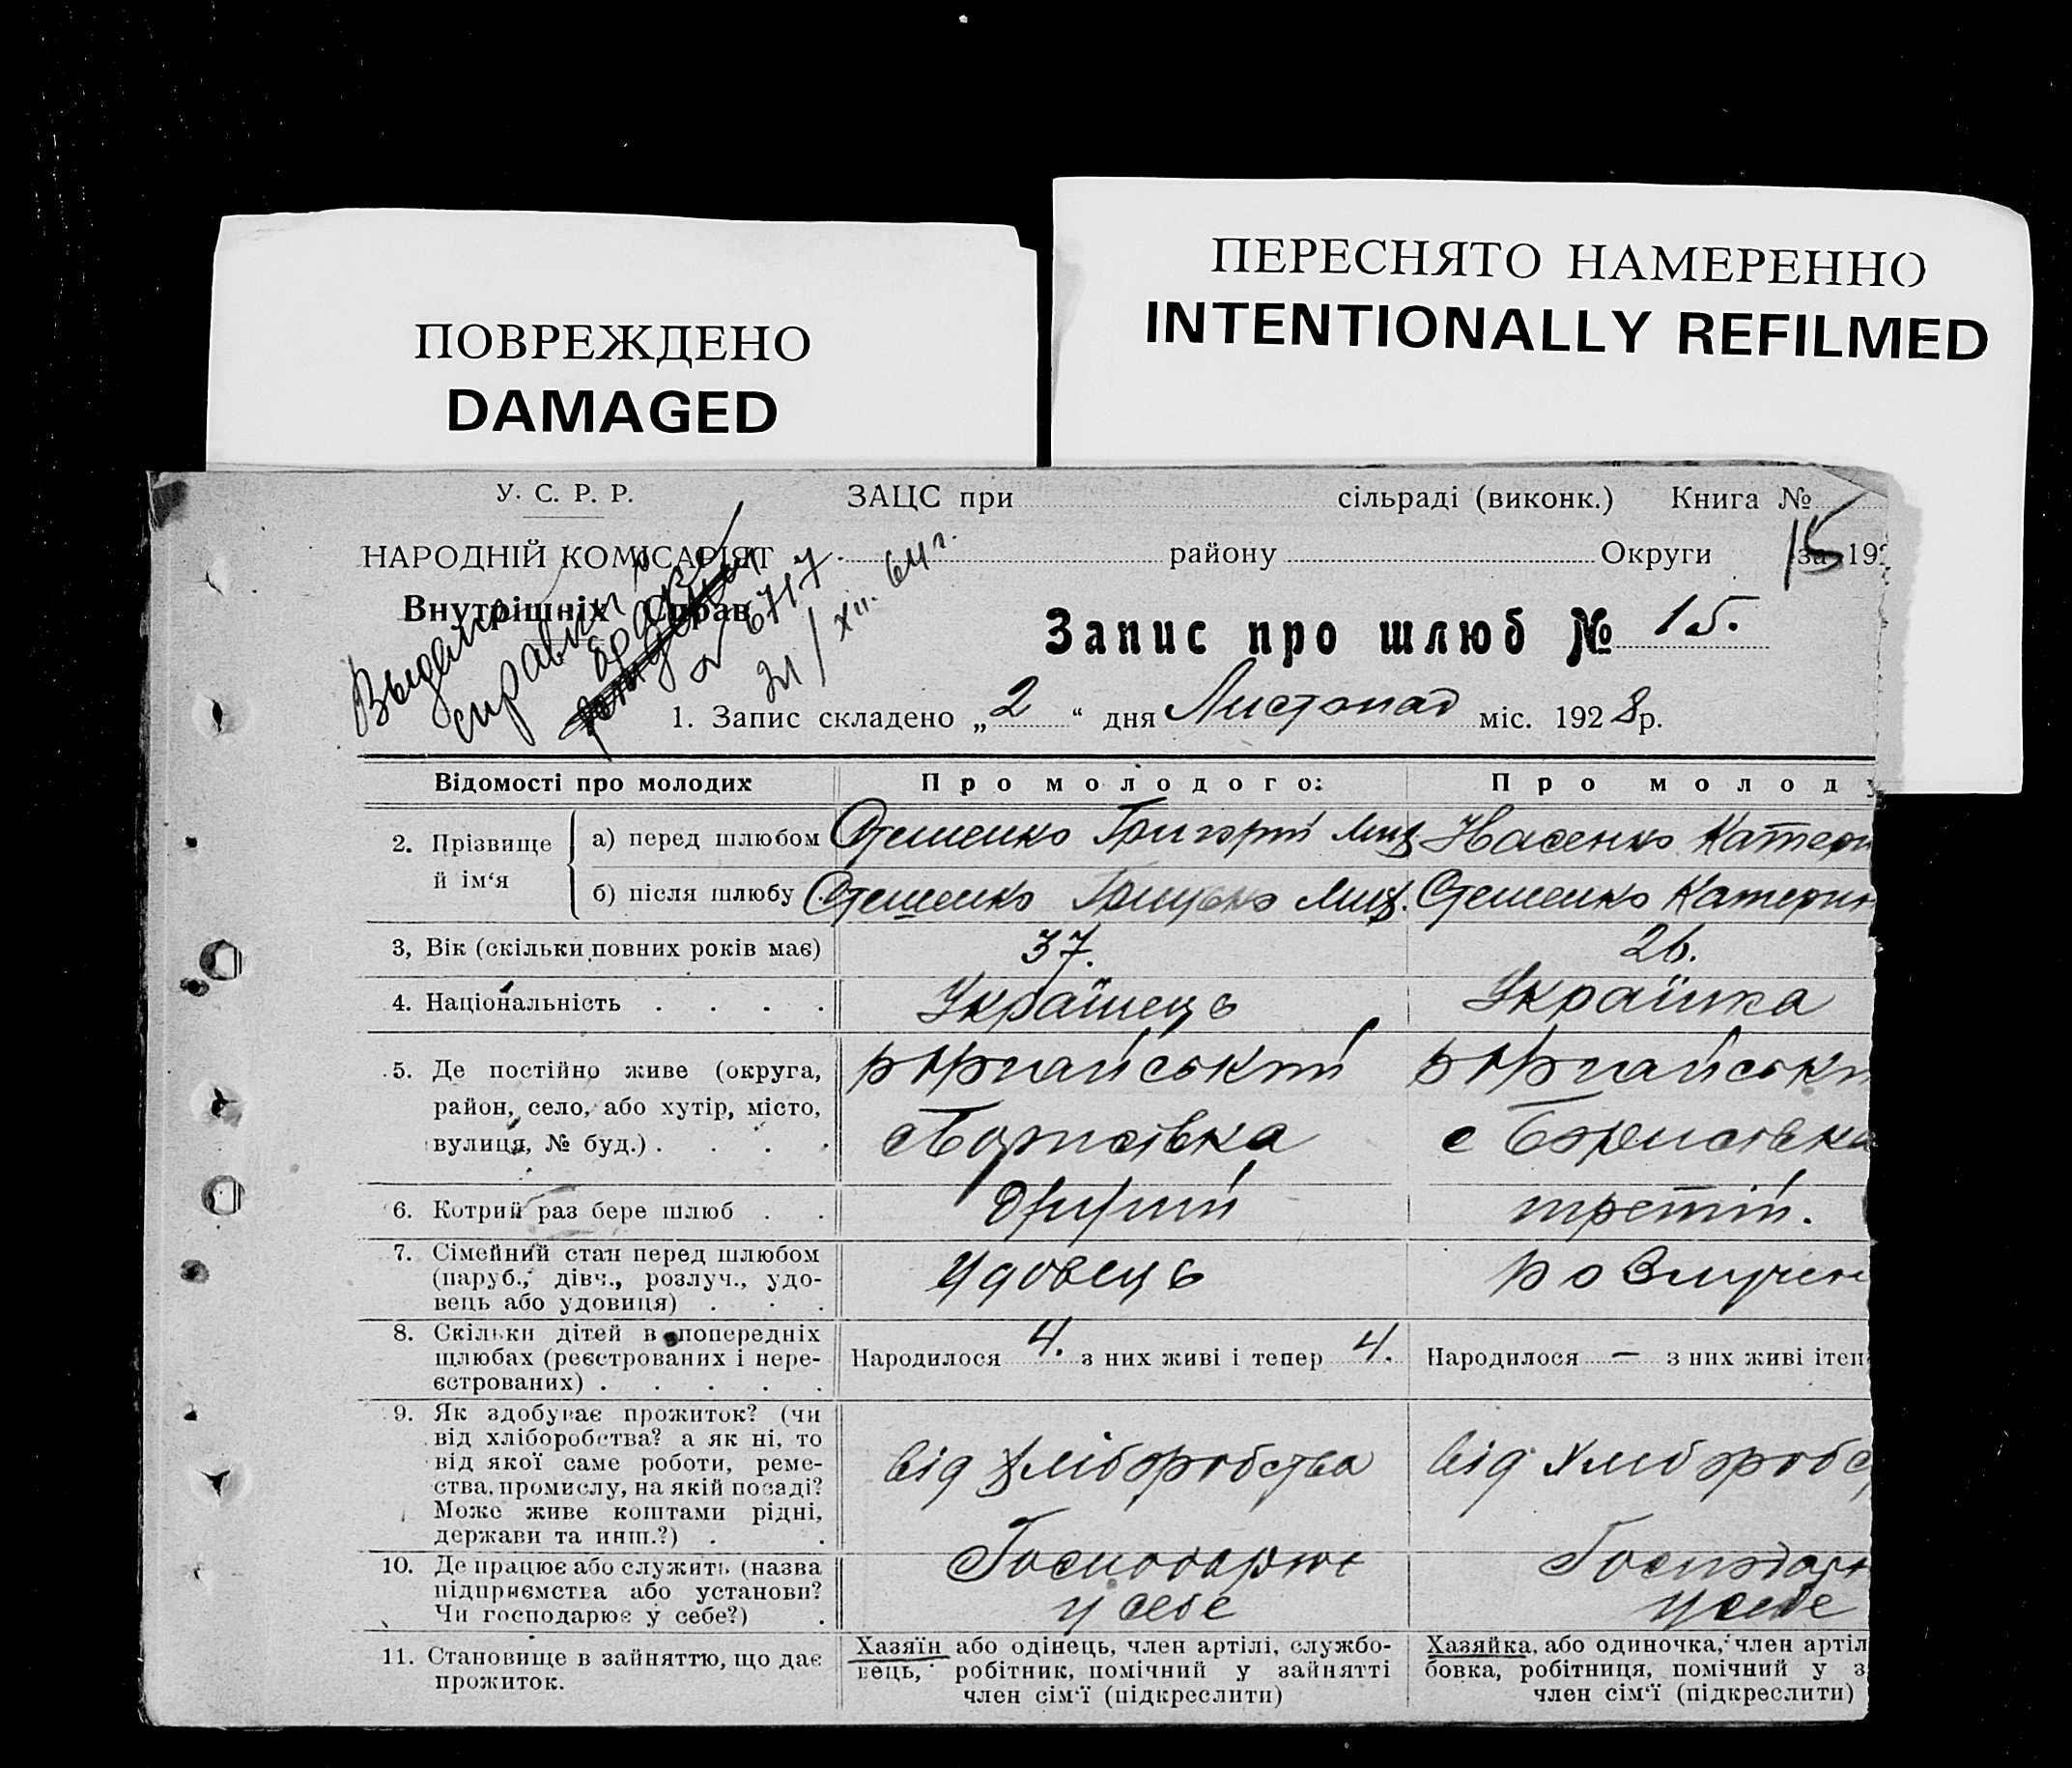 ПОВРЕЖДЕНО
DAMAGED
ПЕРЕСНЯТО НАМЕРЕННО
INTENTIONALLY REFILMED
У. С. Р. Р.
ЗАЦС при сільраді (виконк.) Книга №
НАРОДНІЙ КОМІСАРІЯТ
району Округи за 192
15
Внутрішніх Справ
Запис про шлюб № 15.
№ 6717
21/XII. 64 г.
1. Запис складено „2“ дня Листопад міс. 1928р.
Відомості про молодих Про молодого: Про молоду
2. Прізвище й ім‘я
а) перед шлюбом Стешенко Григорій Мих. Насенко Катери
б) після шлюбу Стешенко Мих. Стешенко Катерин
3, Вік (скільки повних років має) 37. 26.
4. Національність Українець Українка
5. Де постійно живе (округа,
район, село, або хутір, місто,
вулиця, № буд.)
с Борисівка с Борисівка
6. Котрий раз бере шлюб другий третій.
7. Сімейний стан перед шлюбом
(паруб., дівч., розлуч., удо-
вець або удовиця)
удовець розлучен
8. Скільки дітей в попередніх
шлюбах (реєстрованих і нере-
єстрованих)
Народилося 4. з них живі і тепер 4. Народилося — з них живі ітеп
9. Як здобуває прожиток? (чи
від хліборобства? а як ні, то
від якої саме роботи, реме-
ства, промислу, на якій посаді?
Може живе коштами рідні,
держави та инш.?)
від хліборобства від хліборобс
10. Де працює або служить (назва
підприємства або установи?
Чи господарює у себе?)
Господарює
у себе
Господарю
у себе
11. Становище в зайняттю, що дає
прожиток.
Хазяїн або одінець, член артілі, службо-
вець, робітник, помічний у зайнятті
член сім‘ї (підкреслити)
Хазяйка, або одиночка, член артіл
бовка, робітниця, помічний у з
член сім‘ї (підкреслити)